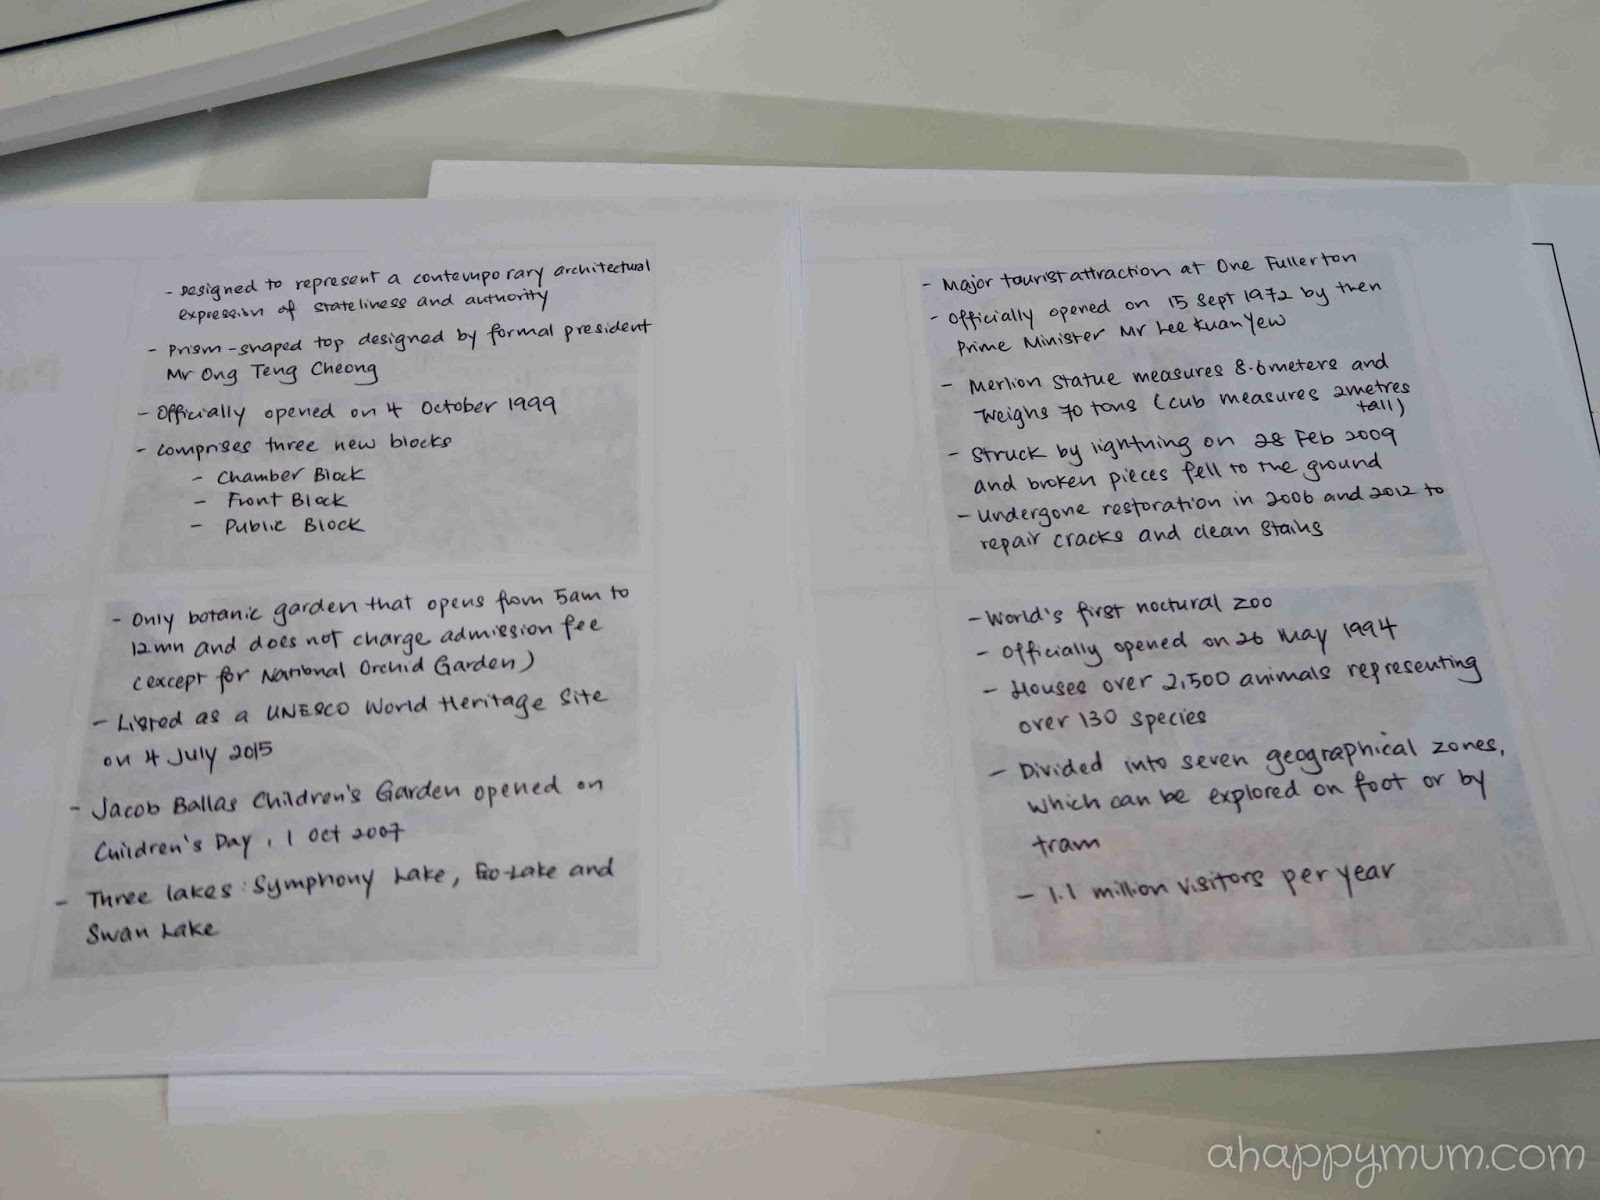 - Designed to represent a contemporary architectural
expression of stateliness and authority
- Prism-shaped top designed by formal president
Mr Ong Teng Cheong
- Officially opened on 4 October 1999
- Comprises three new blocks
- Chamber Block
- Front Block
- Public Block
- Only botanic garden that opens from 5am to
12mn and does not charge admission fee
(except for National Orchid Garden)
- Listed as a UNESCO World Heritage Site
on 4 July 2015
- Jacob Ballas Children's Garden opened on
Children's Day, 1 Oct 2007
- Three lakes: Symphony Lake, Eco-Lake and
Swan Lake
- Major tourist attraction at One Fullerton
- Officially opened on 15 Sept 1972 by then
Prime Minister Mr Lee Kuan Yew
- Merlion statue measures 8.6meters and
weighs 70 tons (cub measures 2metres
tall)
- Struck by lightning on 28 Feb 2009
and broken pieces fell to the ground
- Undergone restoration in 2006 and 2012 to
repair cracks and clean stains
- World's first noctural zoo
- Officially opened on 26 May 1994
- Houses over 2,500 animals representing
over 130 species
- Divided into seven geographical zones,
which can be explored on foot or by
tram
- 1.1 million visitors per year
ahappymum.com